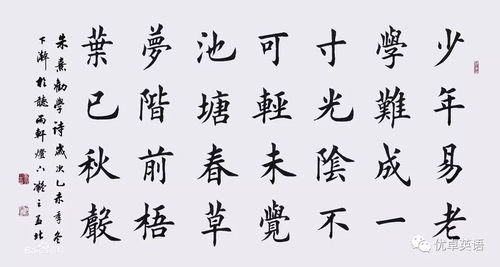 少年易老
學難成一
寸光陰不
可輕未覺
池塘春草
夢階前梧
葉已秋聲
朱熹勸學詩歲次乙未季冬
下澣於聽雨軒燈下
优卓英语